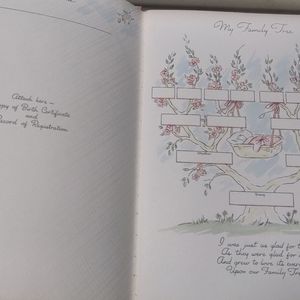 Attach here —
Copy of Birth Certificate
and
Record of Registration
My Family Tree
I was just as glad for
As they were glad for
And grew to love its
Upon our Family Tree